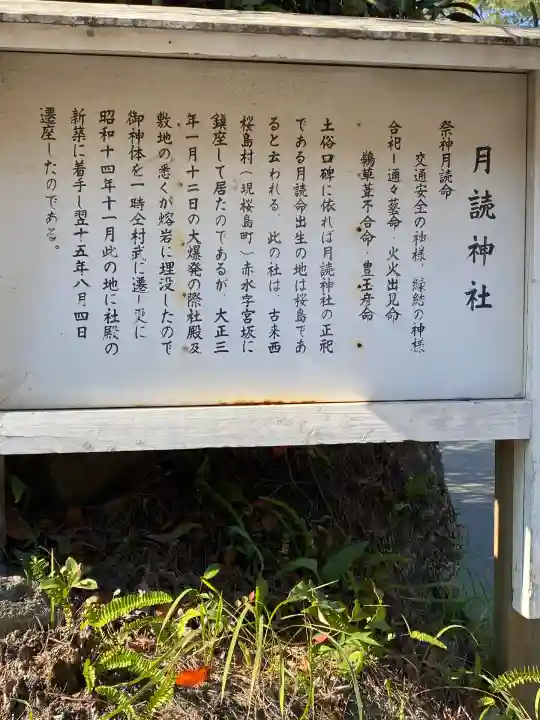 月読神社
祭神月読命
交通安全の神様・縁結の神様
合祀ー邇々藝命・火火出見命
鵜草葺不合命・豊玉彦命
土俗口碑に依れば月読神社の正祀
である月読命出生の地は桜島であ
ると云われる。此の社は、古来西
桜島村（現桜島町）赤水字宮坂に
鎮座して居たのであるが、大正三
年一月十二日の大爆発の際社殿及
敷地の悉くが熔岩に埋没したので
御神体を一時仝村武に遷し更に
昭和十四年十一月此の地に社殿の
新築に着手し翌十五年八月四日
遷座したのである。